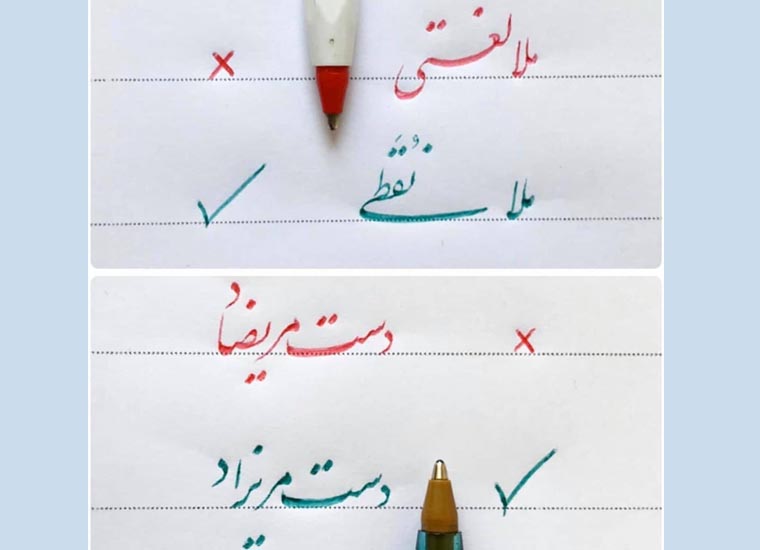 ملا لغتی
ملا نُقَطی
دست مریضاد
دست مریزاد